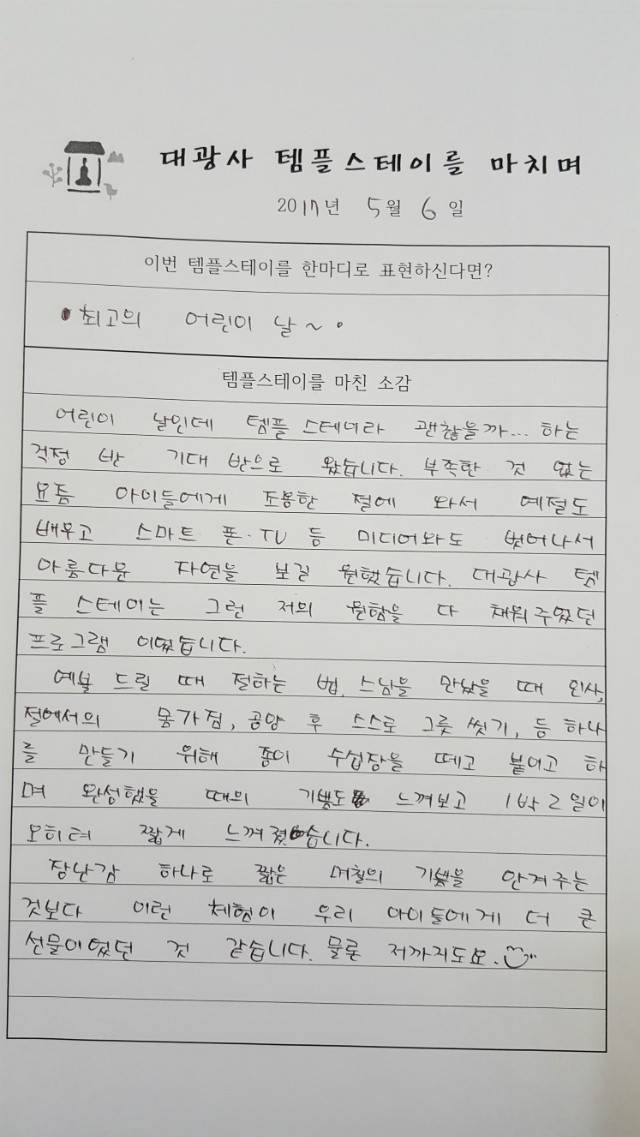 대광사 템플스테이를 마치며
2017년 5월 6일
이번 템플스테이를 한마디로 표현하신다면?
• 최고의 어린이 날~.
템플스테이를 마친 소감
어린이 날인데 템플 스테이라 괜찮을까... 하는
걱정 반 기대 반으로 왔습니다. 부족한 것 없는
요즘 아이들에게 조용한 절에 와서 예절도
배우고 스마트 폰·TV 등 미디어와도 벗어나서
아름다운 자연을 보길 원했습니다. 대광사 템
플 스테이는 그런 저의 원함을 다 채워주었던
프로그램 이었습니다.
예불 드릴 때 절하는 법, 스님을 만났을 때 인사,
절에서의 몸가짐, 공양 후 스스로 그릇 씻기, 등 하나
를 만들기 위해 종이 수십장을 떼고 붙이고 하
며 완성했을 때의 기쁨도 느껴보고 1박 2일이
오히려 짧게 느껴졌습니다.
장난감 하나로 짧은 며칠의 기쁨을 안겨주는
것보다 이런 체험이 우리 아이들에게 더 큰
선물이었던 것 같습니다. 물론 저까지도요.